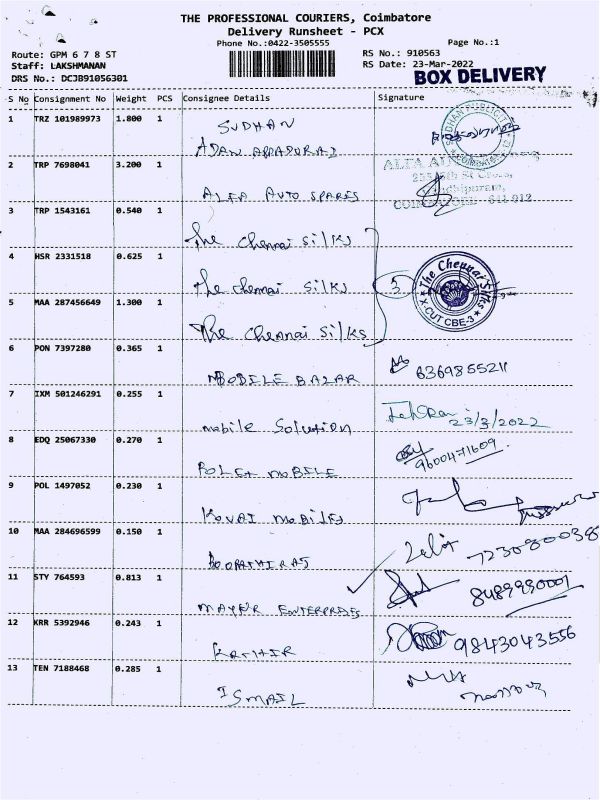 THE PROFESSIONAL COURIERS, Coimbatore
Delivery Runsheet - PCX
Phone No.:0422-3505555
Page No.:1
Route: GPM 6 7 8 ST
RS No.: 910563
Staff: LAKSHMANAN
RS Date: 23-Mar-2022
DRS No.: DCJB91056301
BOX DELIVERY
S No Consignment No Weight PCS Consignee Details Signature
1 TRZ 101989973 1.800 1 SUDHAN
2 TRP 7698041 3.200 1 ALFA AUTO SPARES
COIMBATORE - 641 012
3 TRP 1543161 0.540 1 The Chennai Silks
4 HSR 2331518 0.625 1 The Chennai Silks 3
The Chennai Silks
X-CUT CBE-3
5 MAA 287456649 1.300 1 The Chennai Silks
6 PON 7397280 0.365 1 BAZAR 6369855211
7 IXM 501246291 0.255 1 mobile Solution 23/3/2022
8 EDQ 25067330 0.270 1 MOBILE 9600471609
9 POL 1497052 0.230 1 KOVAI MOBILES
10 MAA 284696599 0.150 1 BOOPATHIRAJ
11 STY 764593 0.813 1 MAYUR ENTERPRISES 8489990001
12 KRR 5392946 0.243 1 KATHIR 9843043556
13 TEN 7188468 0.285 1 ISMAIL